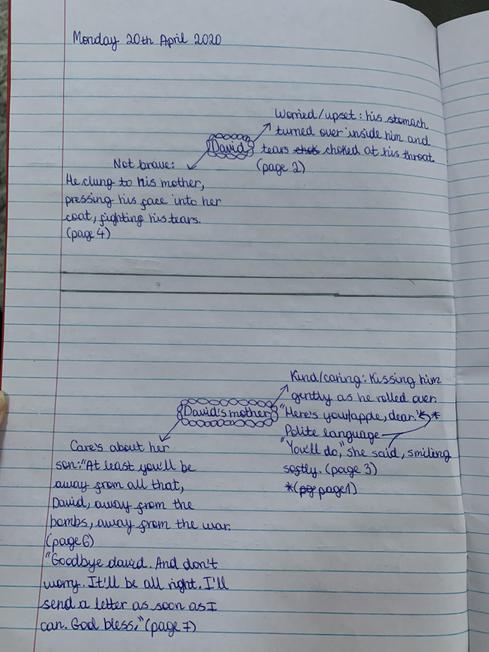 Monday 20th April 2020
Worried/upset: his stomach
turned over inside him and
tears choked at his throat
(page 2)
David
Not brave:
He clung to his mother,
pressing his face into her
coat, fighting his tears.
(page 4)
Kind/caring: Kissing him
gently as he rolled over.
"Here's your apple, dear."*
Polite language
"You'll do," she said, smiling
softly. (page 3)
*(page 1)
David's mother
Cares about her
son: "At least you'll be
away from all that,
David, away from the
bombs, away from the war.
(page 6)
"Goodbye david. And don't
worry. It'll be all right. I'll
send a letter as soon as I
can. God bless," (page 7)